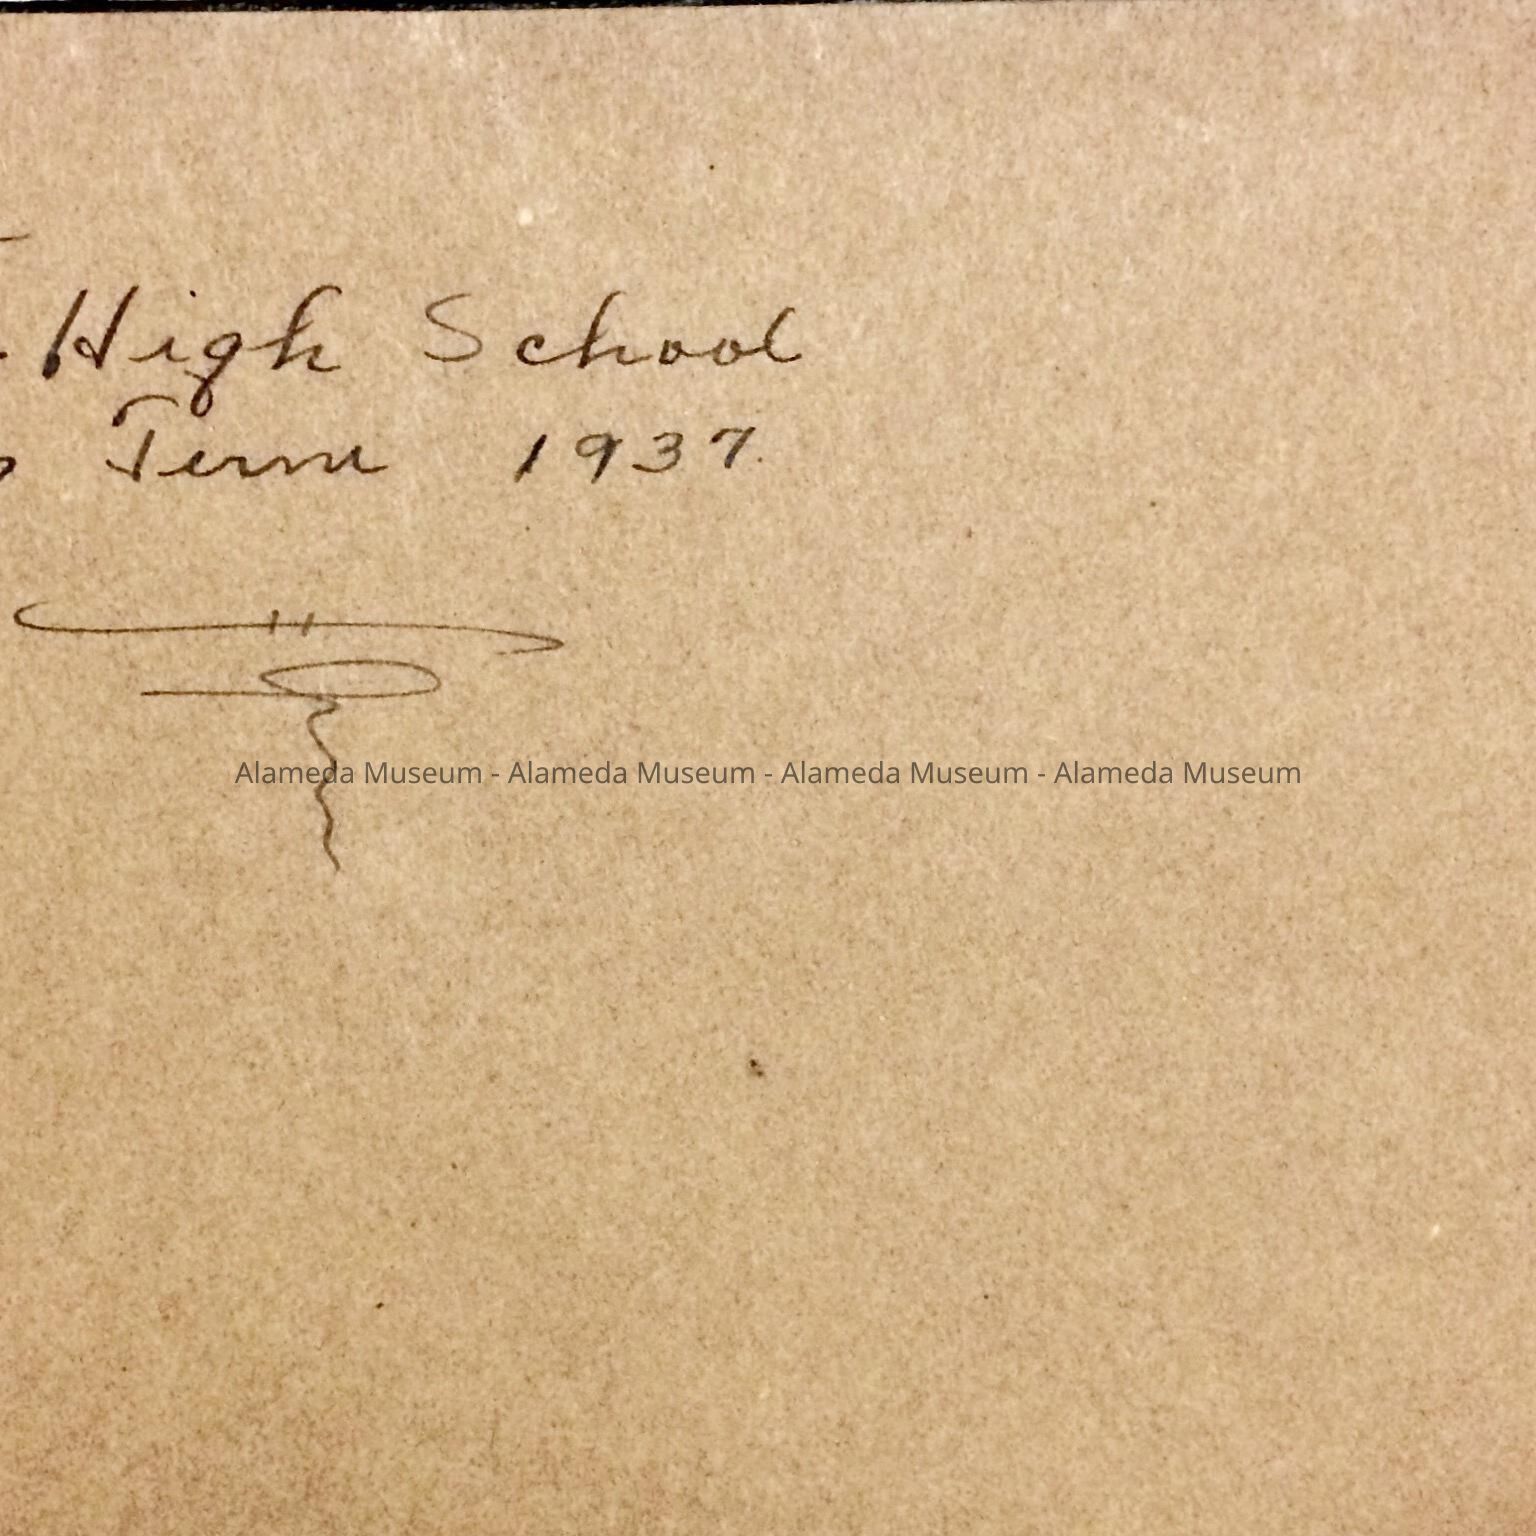 High School
Term 1937.
Alameda Museum - Alameda Museum - Alameda Museum - Alameda Museum